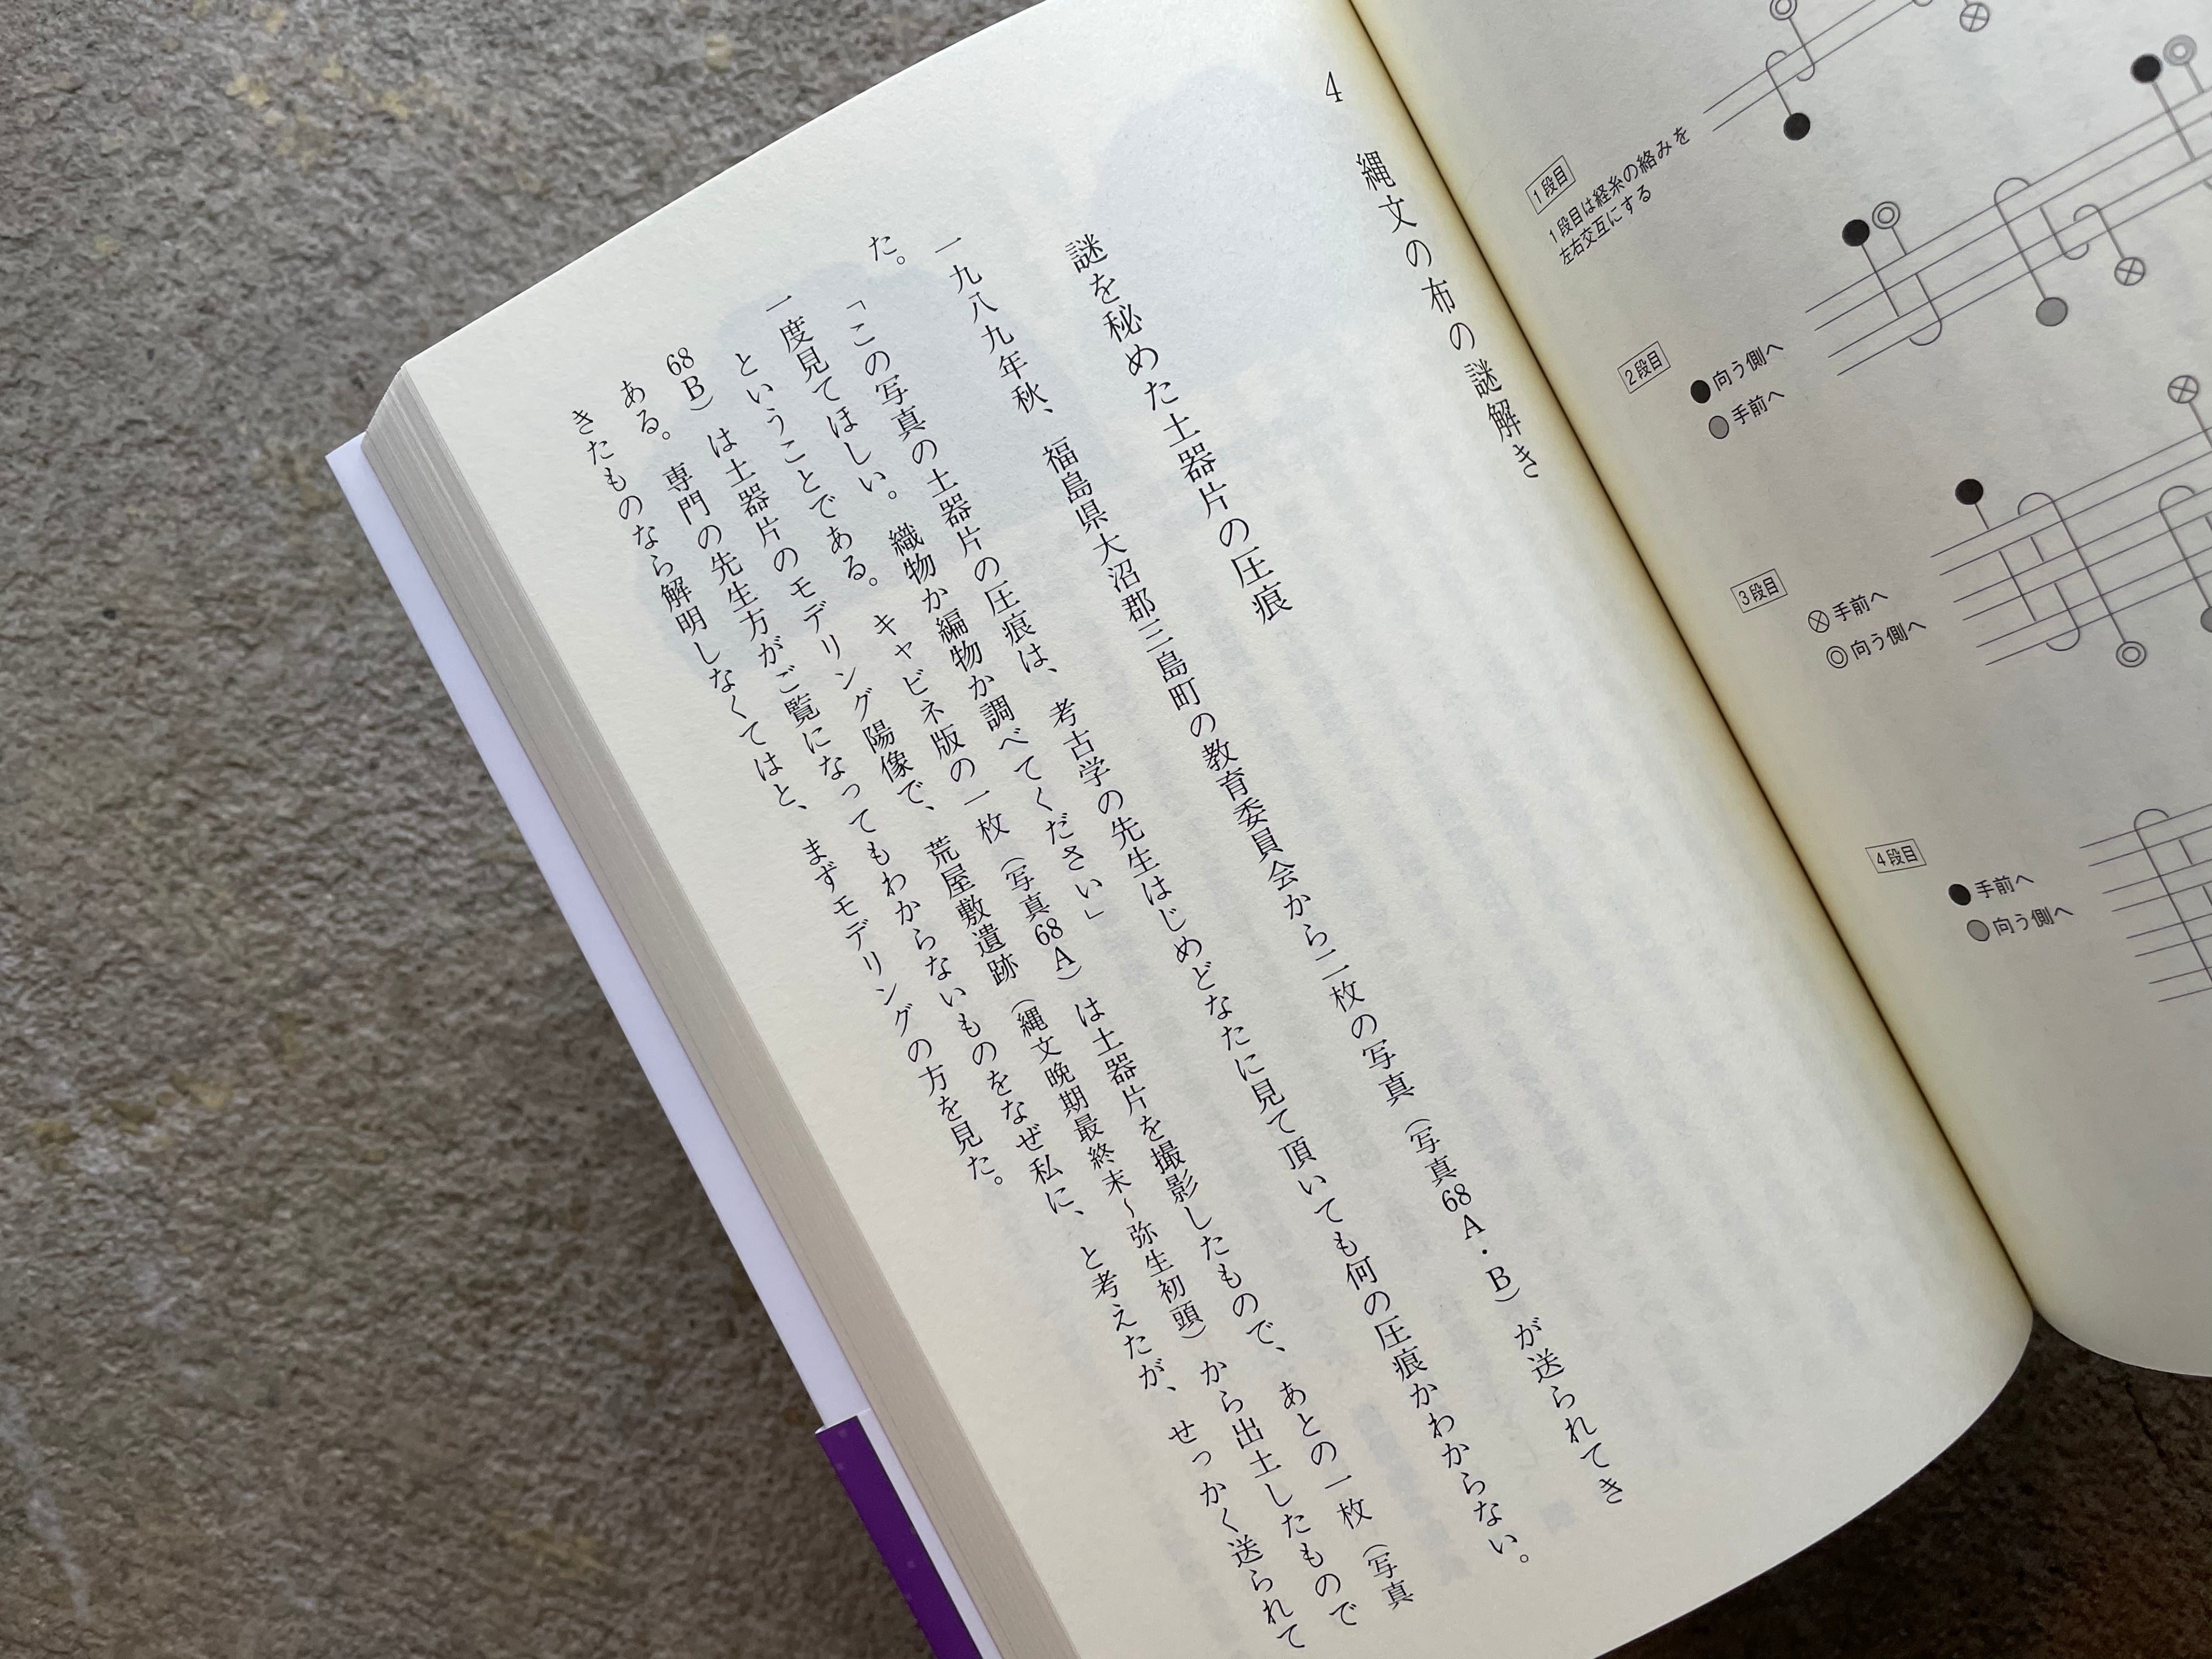 1段目
1段目は経糸の絡みを
左右交互にする
2段目
●向う側へ
●手前へ
3段目
⊗手前へ
◎向う側へ
4段目
●手前へ
●向う側へ
4 縄文の布の謎解き
謎を秘めた土器片の圧痕
一九八九年秋、福島県大沼郡三島町の教育委員会から二枚の写真（写真68A・B）が送られてき
た。
「この写真の土器片の圧痕は、考古学の先生はじめどなたに見て頂いても何の圧痕かわからない。
一度見てほしい。織物か編物か調べてください」
ということである。キャビネ版の一枚（写真68A）は土器片を撮影したもので、あとの一枚（写真
68B）は土器片のモデリング陽像で、荒屋敷遺跡（縄文晩期最終末～弥生初頭）から出土したもので
ある。専門の先生方がご覧になってもわからないものをなぜ私に、と考えたが、せっかく送られて
きたものなら解明しなくてはと、まずモデリングの方を見た。